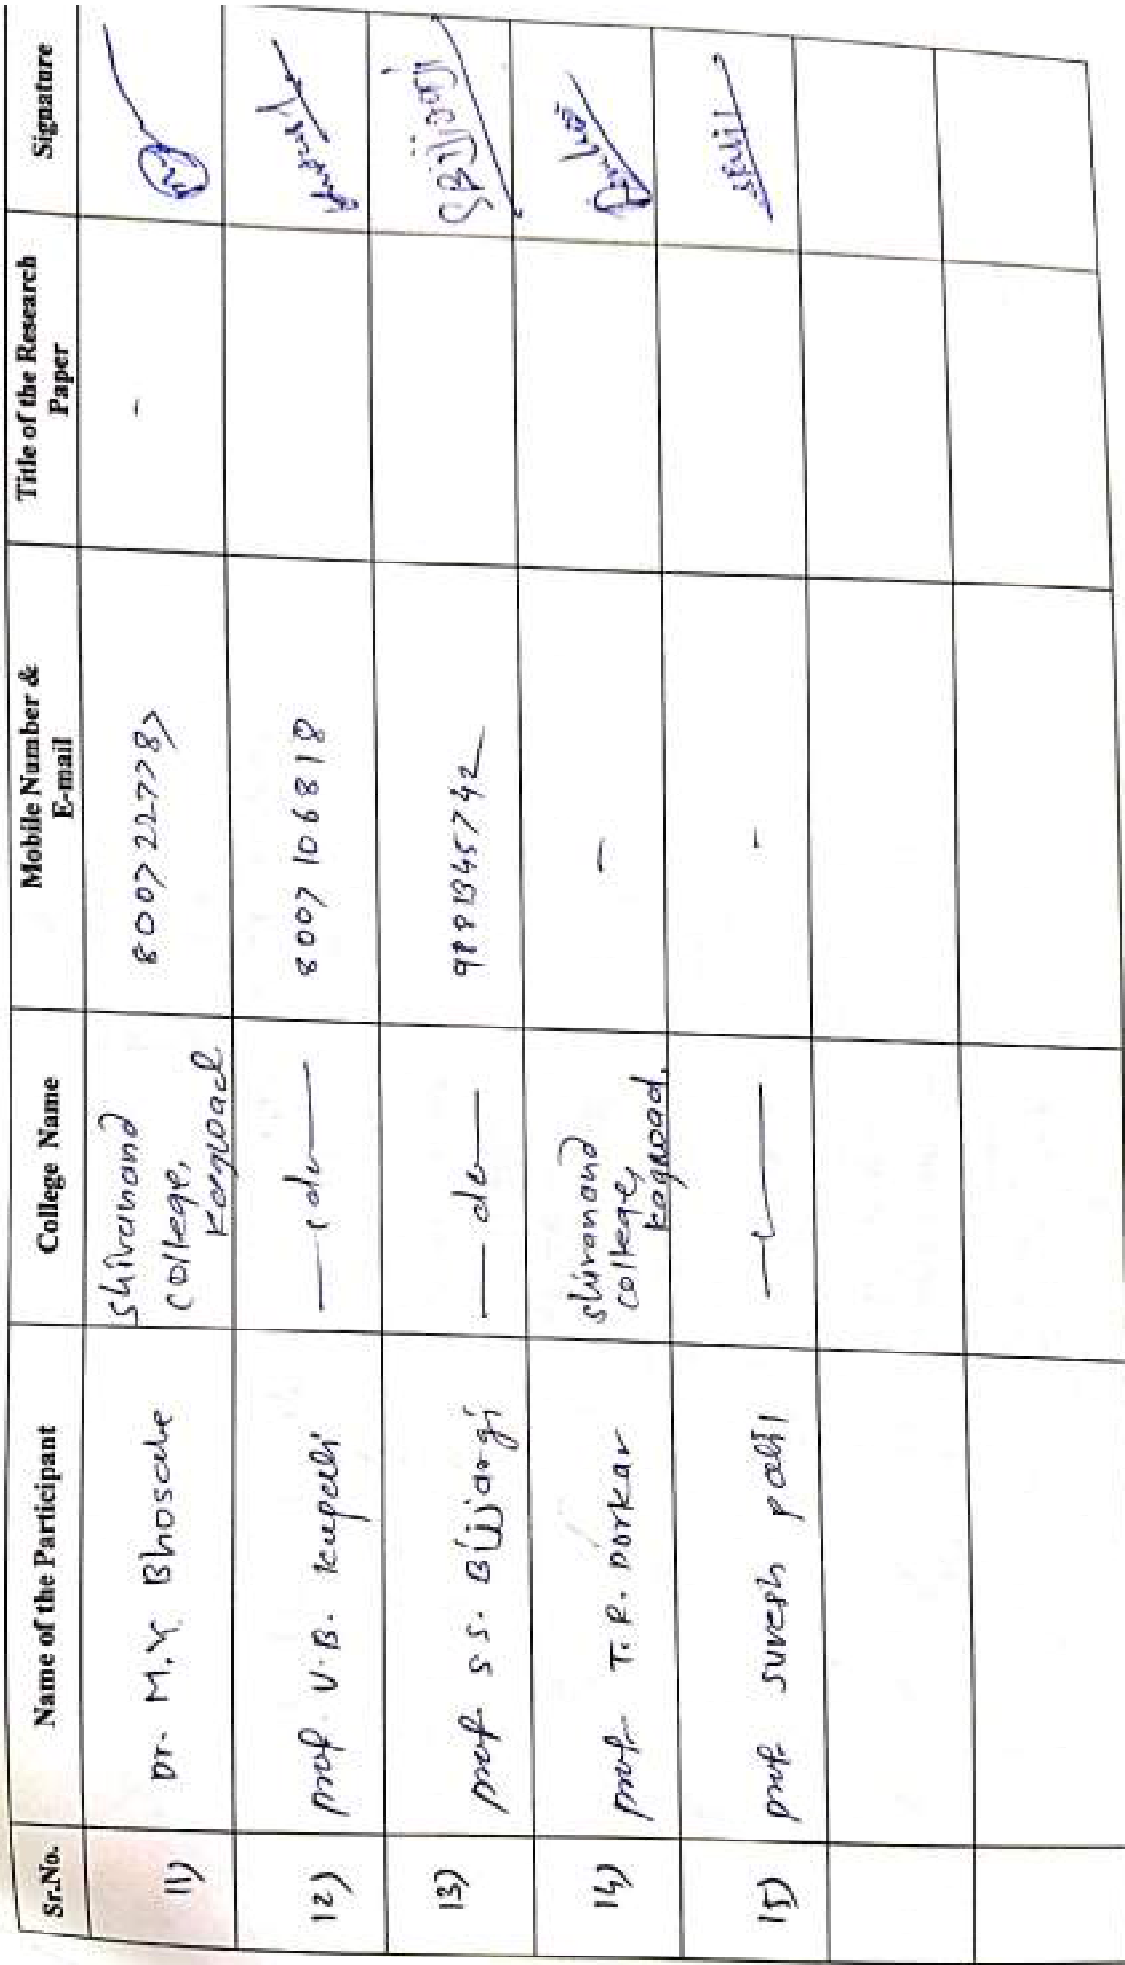 Sr.No. Name of the Participant College Name Mobile Number & E-mail Title of the Research Paper Signature
11) Dr. M.Y. Bhosale shivanand 8007227787 -
college,
Kagwad
12) prof. V.B. Kupali — do — 8007106818
13) prof. S S. Bijjargi — do — SBijjargi
14) prof. T.R. Dorkar shivanand -
college,
kagwad.
15) prof. suresh patil — -